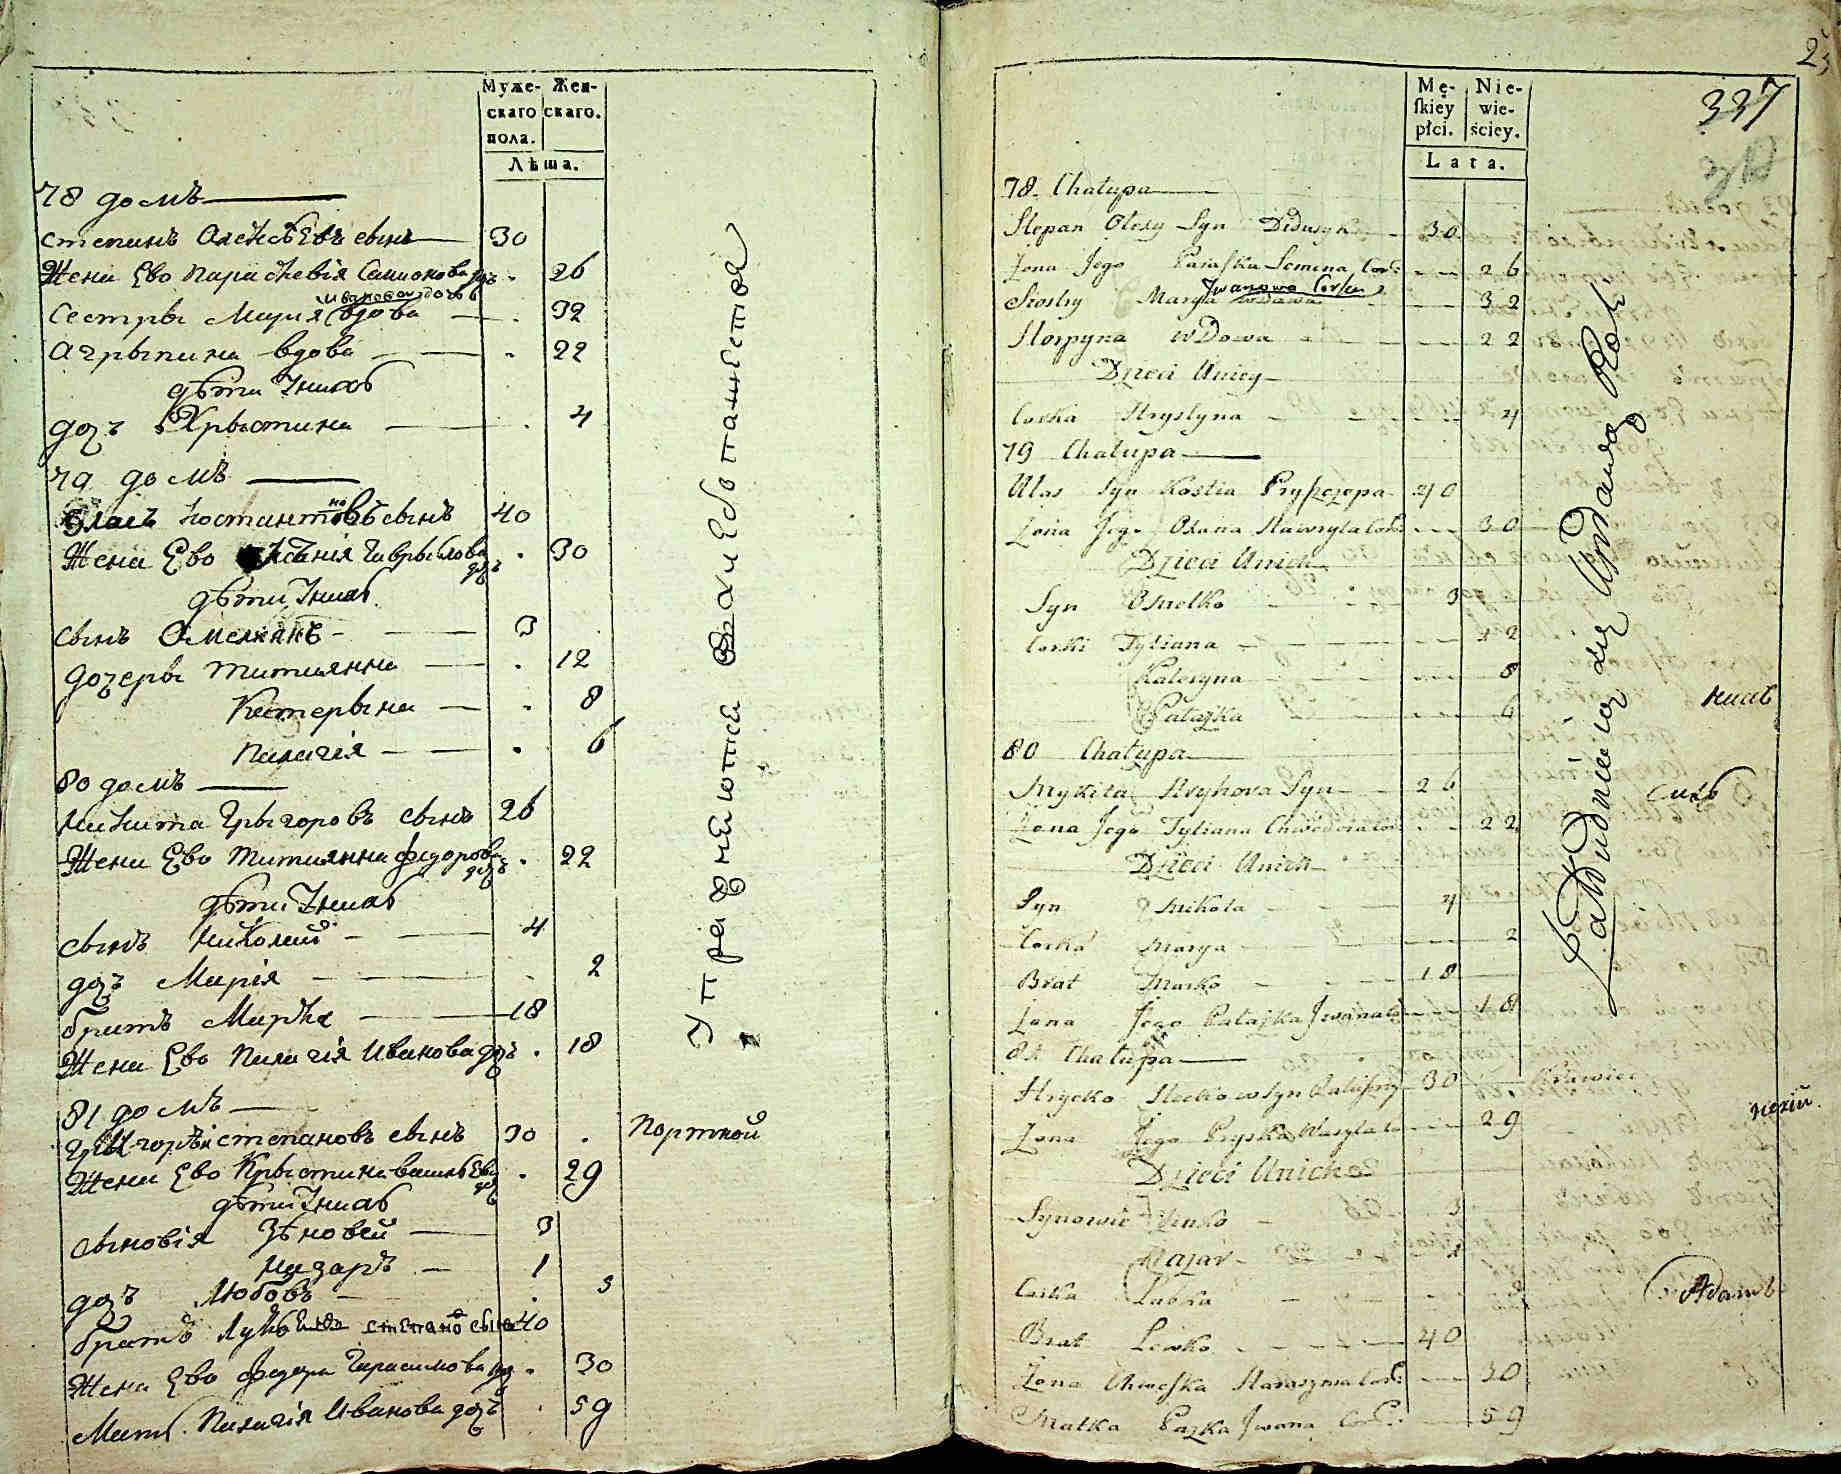 Муже-
скаго
пола.
Жен-
скаго.
Лѣта.
78 домъ
степанъ Алексѣевъ сынъ 30
Жена Ево параскевія Семионова дочь 26
Ивановадочь
Сестры Мария вдова 32
Агрыпина вдова 22
дѣти Унихъ
дочъ Хрыстина 4
79 домъ
Власъ костантиновъ сынъ 40
Жена Ево Ксѣнія Гаврылова дочъ 30
дѣти Унихъ
сынъ Омелянъ 3
дочеры татиянна 12
Катерына 8
палагія 6
80 домъ
никита Грыгоровъ сынъ 26
Жена Ево татиянна федорова дочъ 22
дѣти Унихъ
сынъ николай 4
дочъ Марія 2
братъ Марко 18
Жена Ево палагія Иванова дочъ 18
81 домъ
Грыгорѣй степановъ сынъ 30 портной
Жена Ево Крыстина василѣва дочъ 29
дѣти Унихъ
сыновія Зѣновей 3
назаръ 1
дочъ Любовъ 3
братъ степано сынъ 40
Жена Ево федора Гарасимова дочъ 30
Мать палагія Иванова дочъ 59
Упражнеютца въ хлебопашестве
25
337
Mę-
ſkiey
płci.
Nie-
wie-
ściey.
Lata.
78 Chałupa
Stepan Olexy Syn Didusyk 30
Zona Jego Paraſka Semena Corka 26
Jwanowa Corka
Siostry Marya wdowa 32
Horpyna wDowa 22
Dzieci Uniey
Corka Hrystyna 4
79 Chałupa
Ułas Syn Kostia Pryſzczepa 40
Zona Jego Oxana Hawryła Corka 30
Dzieci Unich
Syn Omelko 3
Corki Tytiana 12
Kateryna 8
Pałażka 6
80 Chałupa
Mykita Hryhora Syn 26
Zona Jego Tytiana Chwedora Cor: 22
Dzieci Unich
Syn Mikoła 4
Corka Marya 2
Brat Marko 18
Zona Jego Pałażka Jwana Co 18
81 Chałupa
Hrycko Stecków Syn 30 Krawiec
Zona Jego Pryska Wasyla Co 29
Dzieci Unich
Synowie Zinko 3
Nazar 1
Corka Lubka 3
Brat Lewko 40
Zona Chweſka Harasyma Cork: 30
Matka Pazka Jwana Cork: 59
Zatrudnieniaią się Uprawą Roli